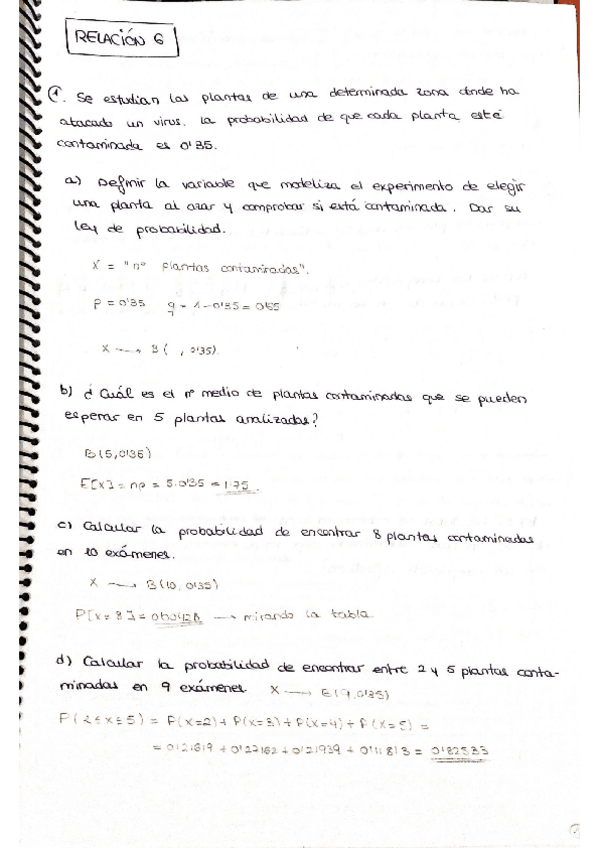 RELACIÓN 6
1. Se estudian las plantas de una determinada zona donde ha
atacado un virus. La probabilidad de que cada planta esté
contaminada es 0'35.
a) Definir la variable que modeliza el experimento de elegir
una planta al azar y comprobar si está contaminada. Dar su
ley de probabilidad.
X = "nº plantas contaminadas".
p = 0'35 q = 1-0'35 = 0'65
X → B( , 0'35)
b) ¿Cuál es el nº medio de plantas contaminadas que se pueden
esperar en 5 plantas analizadas?
B(5, 0'35)
E[X] = np = 5·0'35 = 1'75.
c) Calcular la probabilidad de encontrar 8 plantas contaminadas
en 10 exámenes.
X → B(10, 0'35)
P[X = 8] = → mirando la tabla
d) Calcular la probabilidad de encontrar entre 2 y 5 plantas conta-
minadas en 9 exámenes. X → B(9, 0'35)
P(2≤x≤5) = P(X=2) + P(X=3) + P(X=4) + P(X=5) =
= 0'21619 + 0'27162 + 0'21939 + 0'11813 = 0'82533